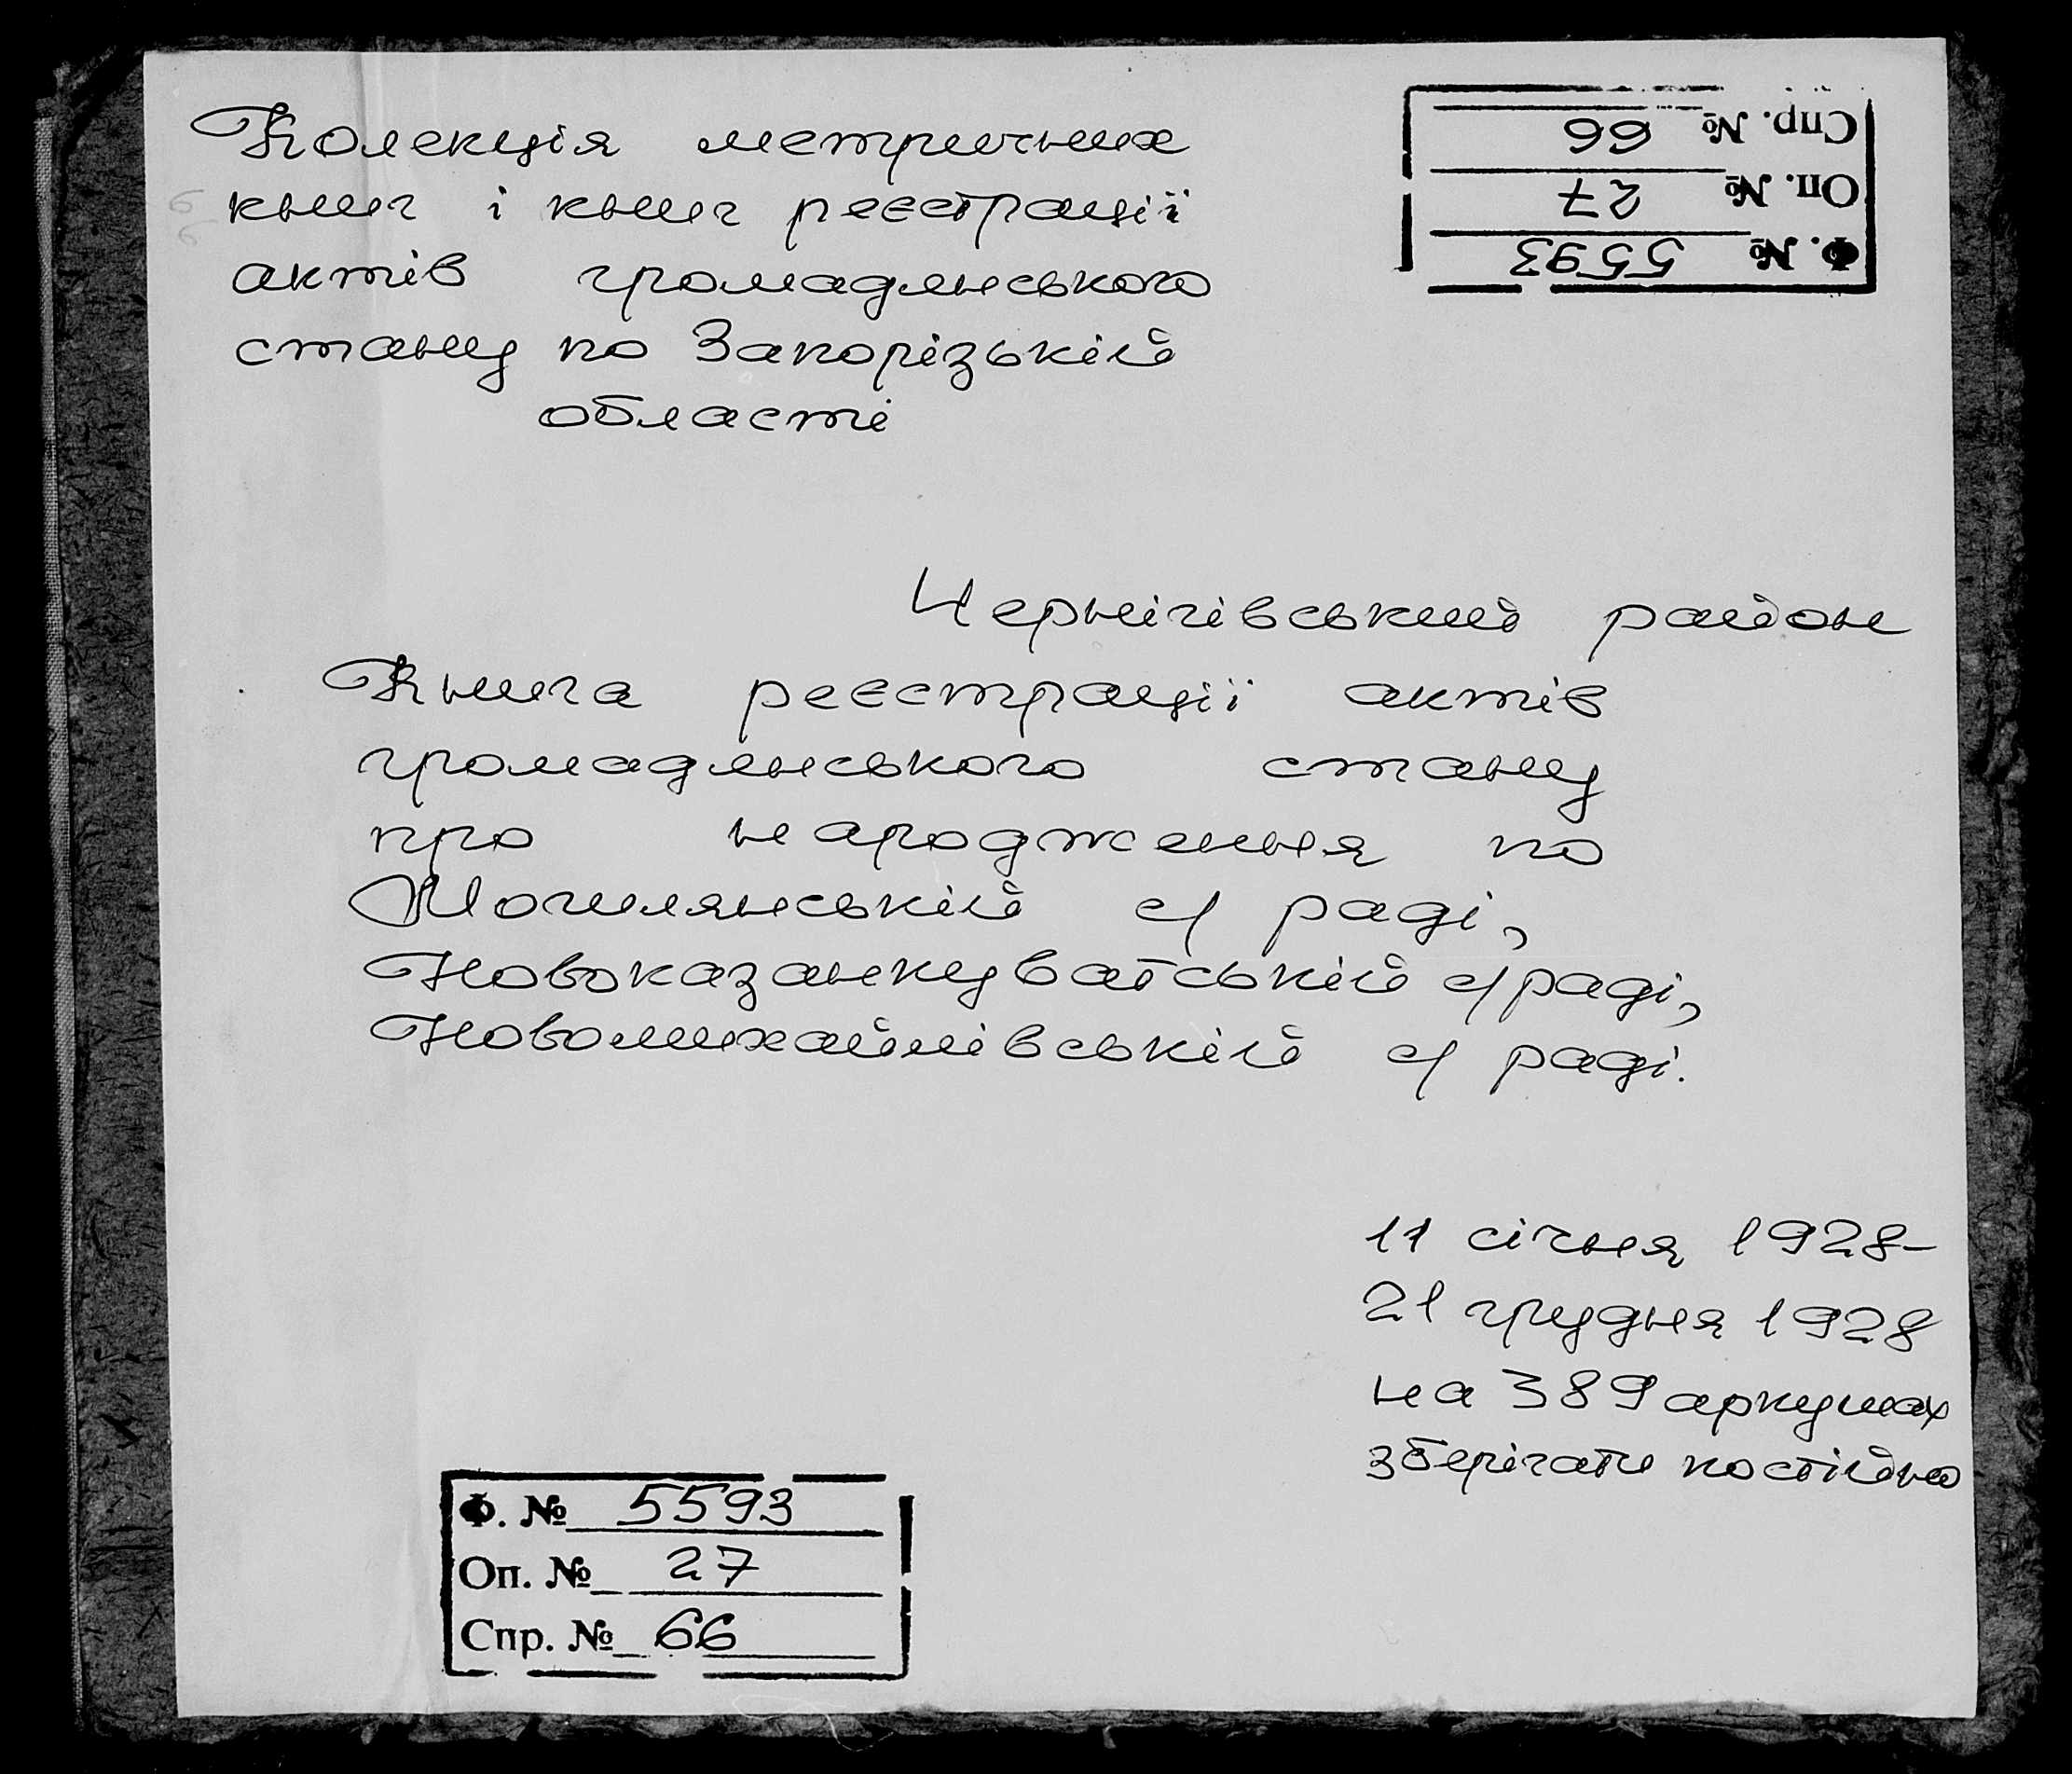 Колекція метричних
книг і книг реєстрації
актів громадянського
стану по Запорізькій
області
Спр. № 66
Оп. № 27
Ф. № 5593
Чернігівський район
Книга реєстрації актів
громадянського стану
про народження по
Могилянській с/ раді,
Новоказанкуватській с/ раді,
Новомихайлівській с/ раді.
11 січня 1928-
21 грудня 1928
на 389 аркушах
зберігати постійно
Ф. № 5593
Оп. № 27
Спр. № 66